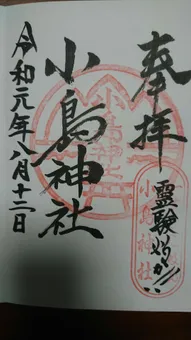 奉拝
靈験
小島神社
小島神社
令和元年八月十二日